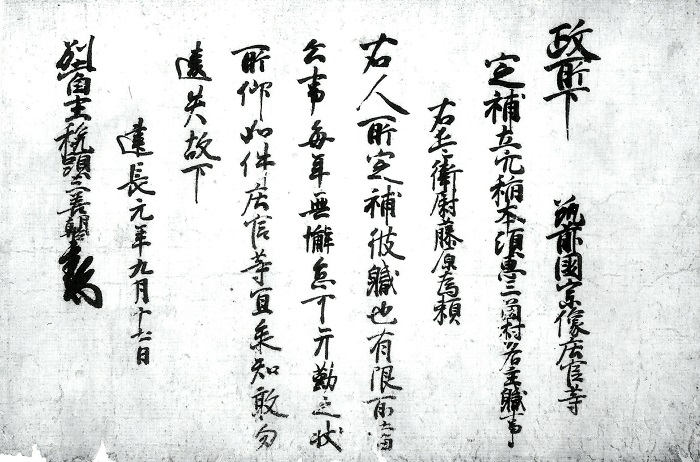 政所下 筑前國宗像庄官等
定補立穴稲本須恵三箇村名主職事
右兵衛尉藤原為頼
右人所定補彼職也有限所当
公事毎年無懈怠可弁勤之状
所仰如件庄官等宜承知敢勿
遺失故下
建長元年九月十六日
別当主税頭三善朝臣